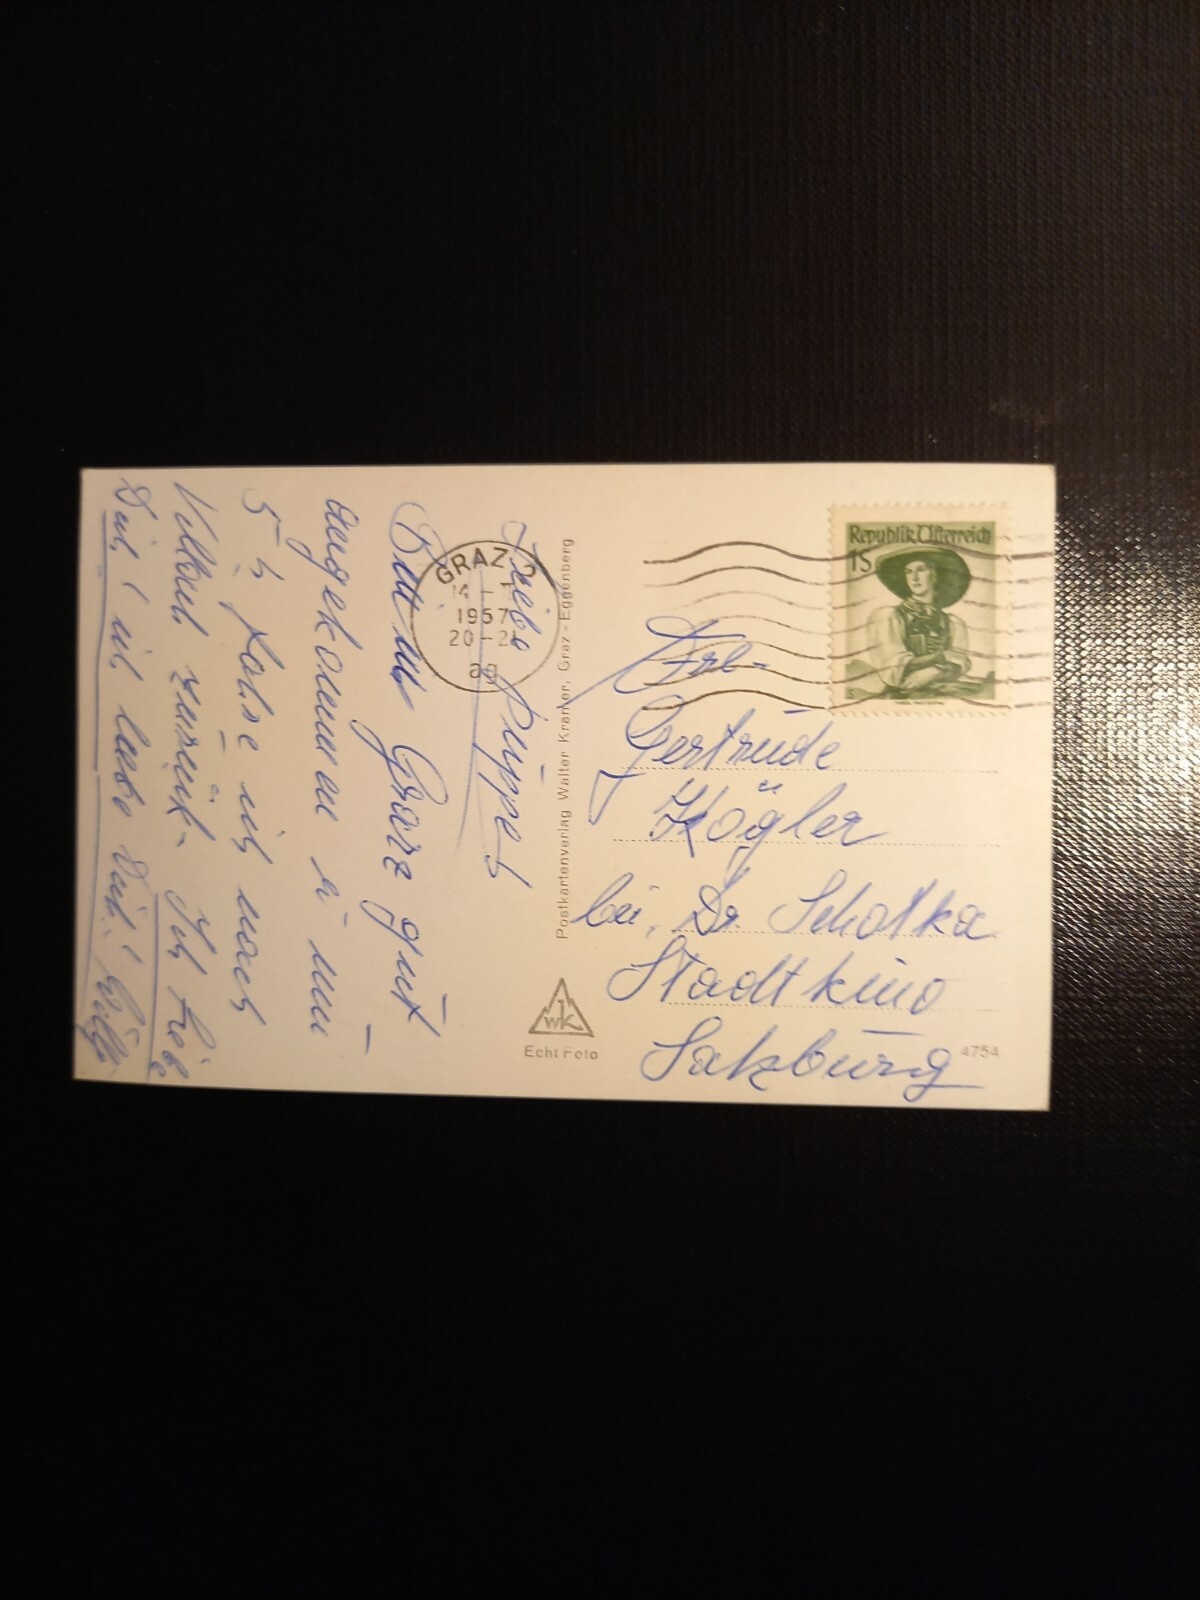 Liebe Puppe!
Bin in Graz gut
angekommen
5 h fahre ich nach
zurück. Ich liebe
Dich, ich liebe Dich!
GRAZ 2
1957
20-21
ag
Postkartenverlag Walter Kramer, Graz-Eggenberg
WK
Echt Foto
Republik Österreich
1S
Frl.
Gertrude
Kögler
bei Dr. Schotka
Stadtkino
Salzburg
4754